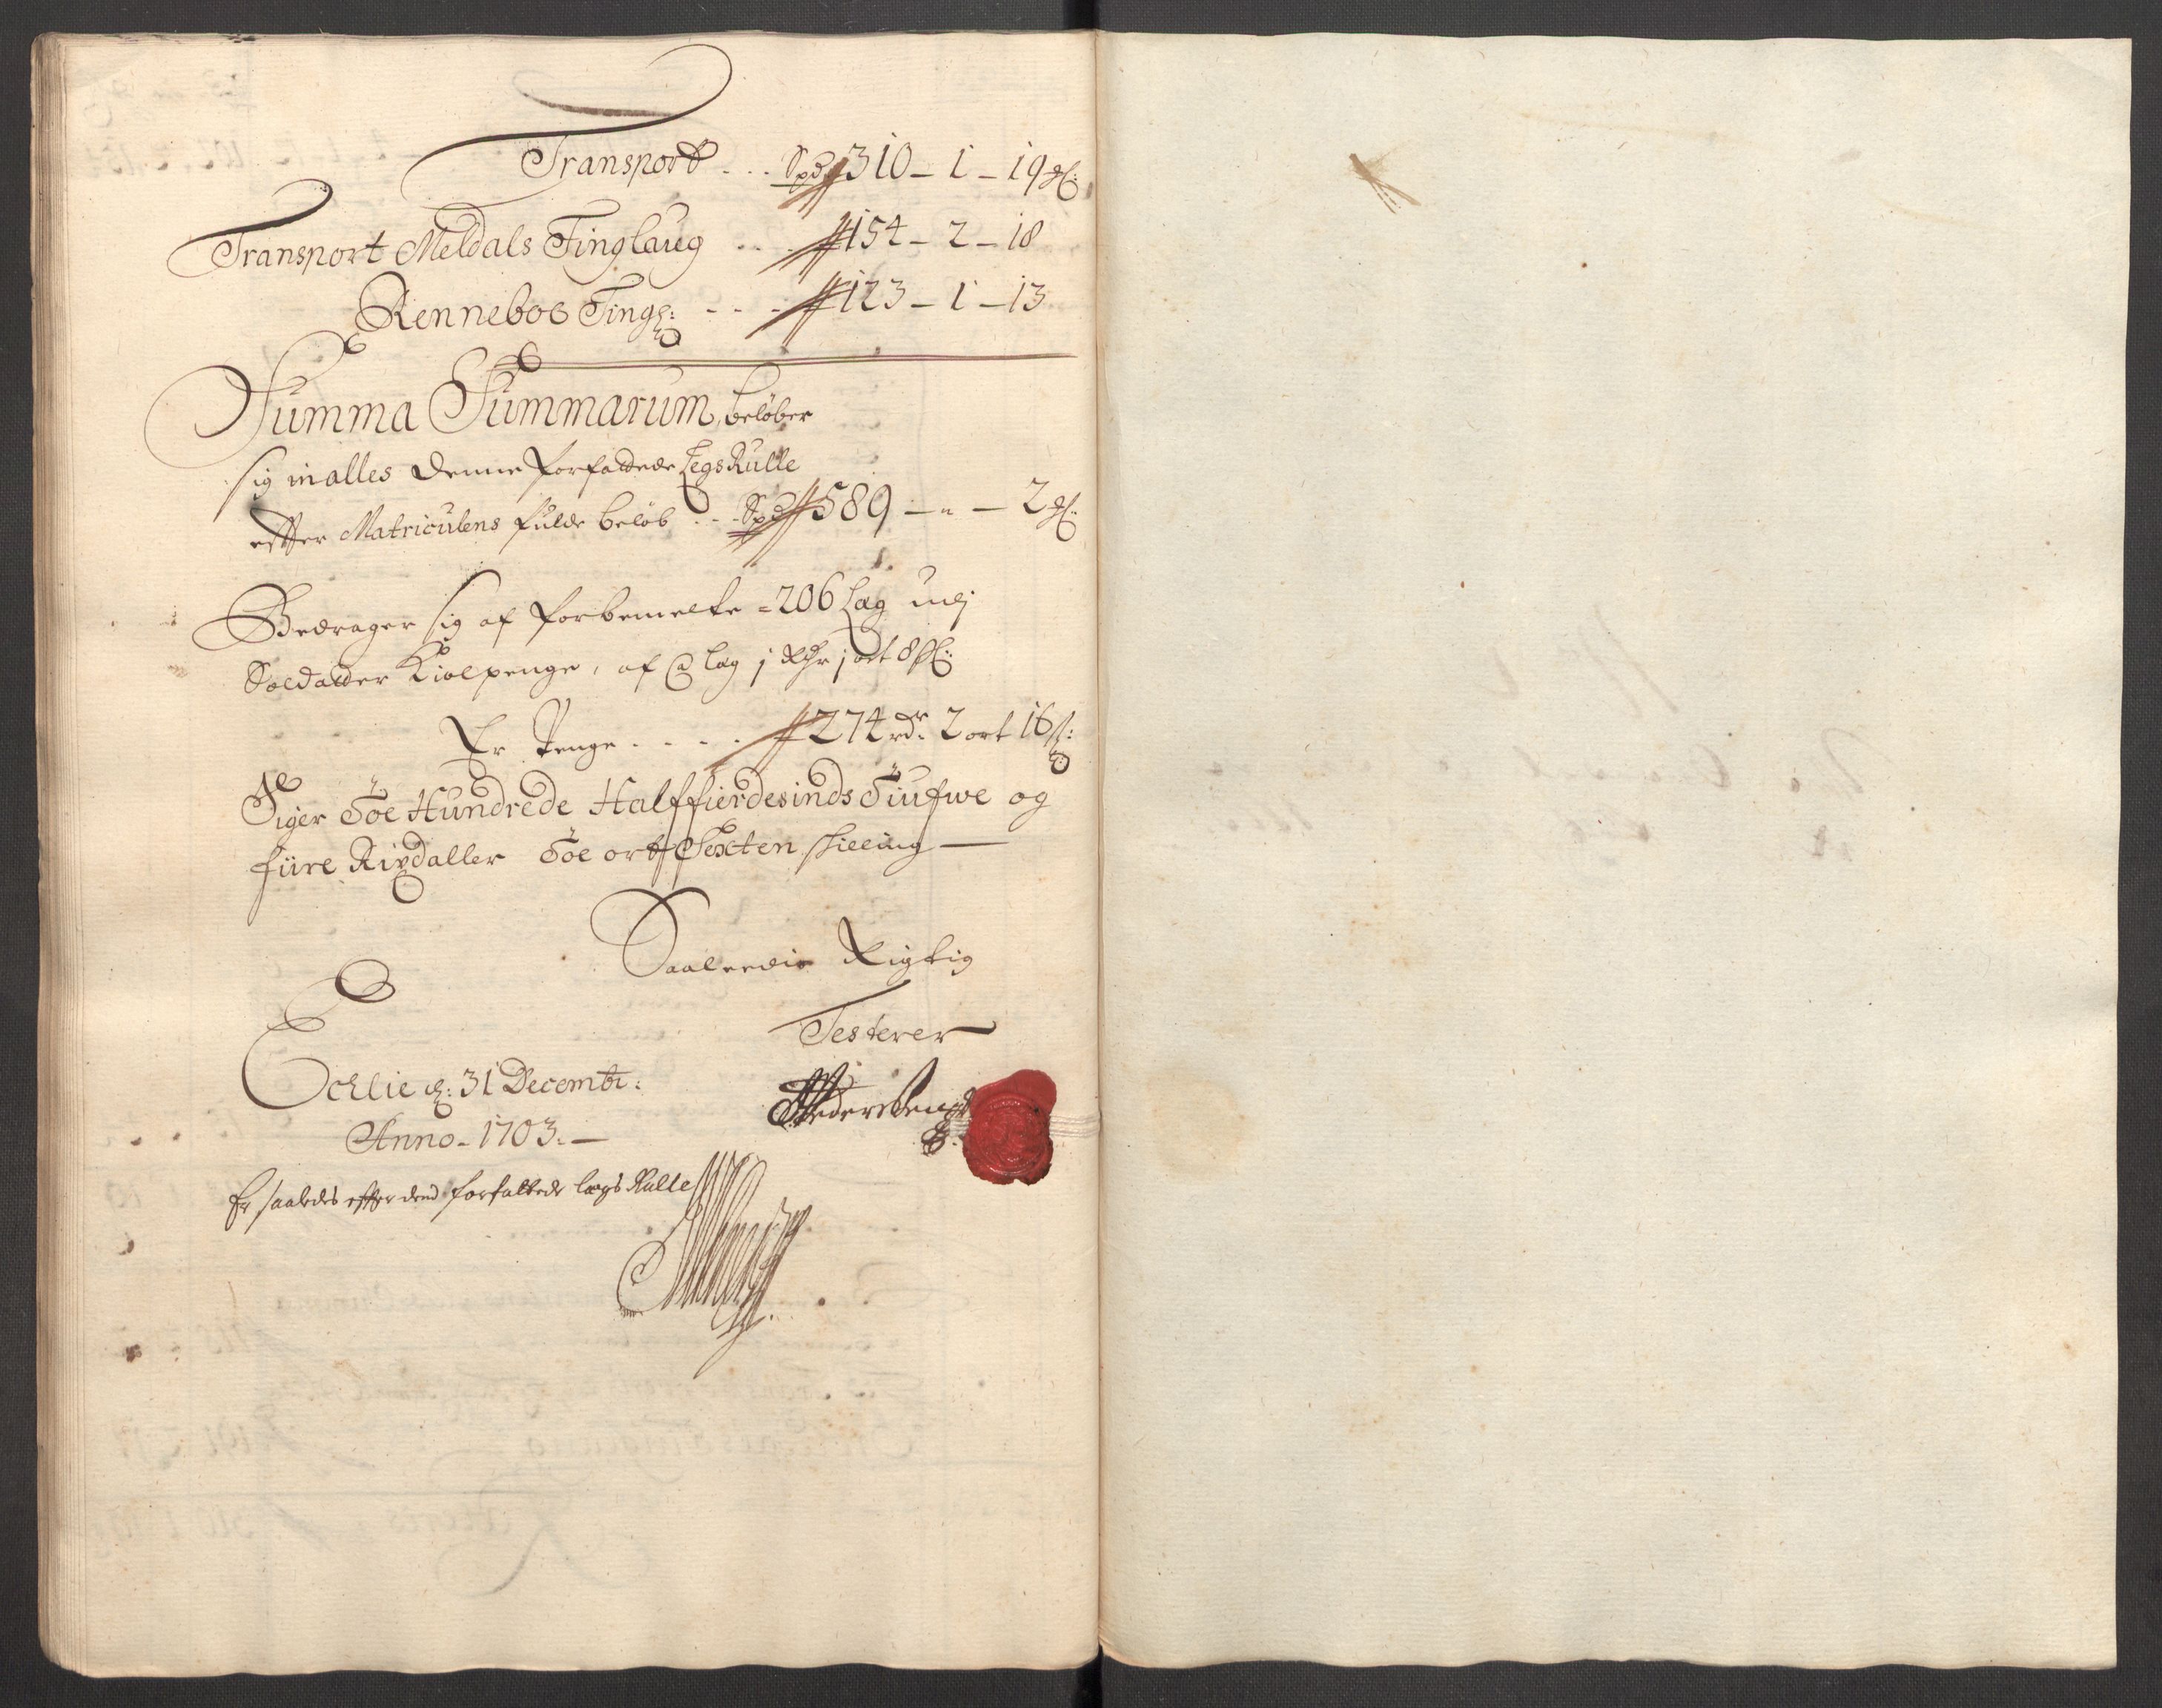 Transport . . . Spd 310 – 1 – 19 ß:
Transport Meldals Tinglaug . . . 154 – 2 – 18
Renneboe Tingl: - - - 123 – 1 – 13
Summa Summarum, beløber
sig in alles denne forfattede LegsRulle
effter Matriculens fulde beløb . . . Spd 589 – " – 2 ß:
Bedrager sig af forbemelte = 206 Lag udj
Soldatter Kiolpenge, af @ lag j Rdr j ort 8 ß:
Er Penge . . . . . 274 rdr. 2 ort 16 ß:
Siger Toe Hundrede Halffierdesinds Tiufwe og
fiire Rixdaller Toe ort Sexten skilling —
Saaledis Rigtig
Testerer
Ecklie d: 31 Decembr:
Anno – 1703. —
Er saaledes effter dend forfattede lægs Rulle